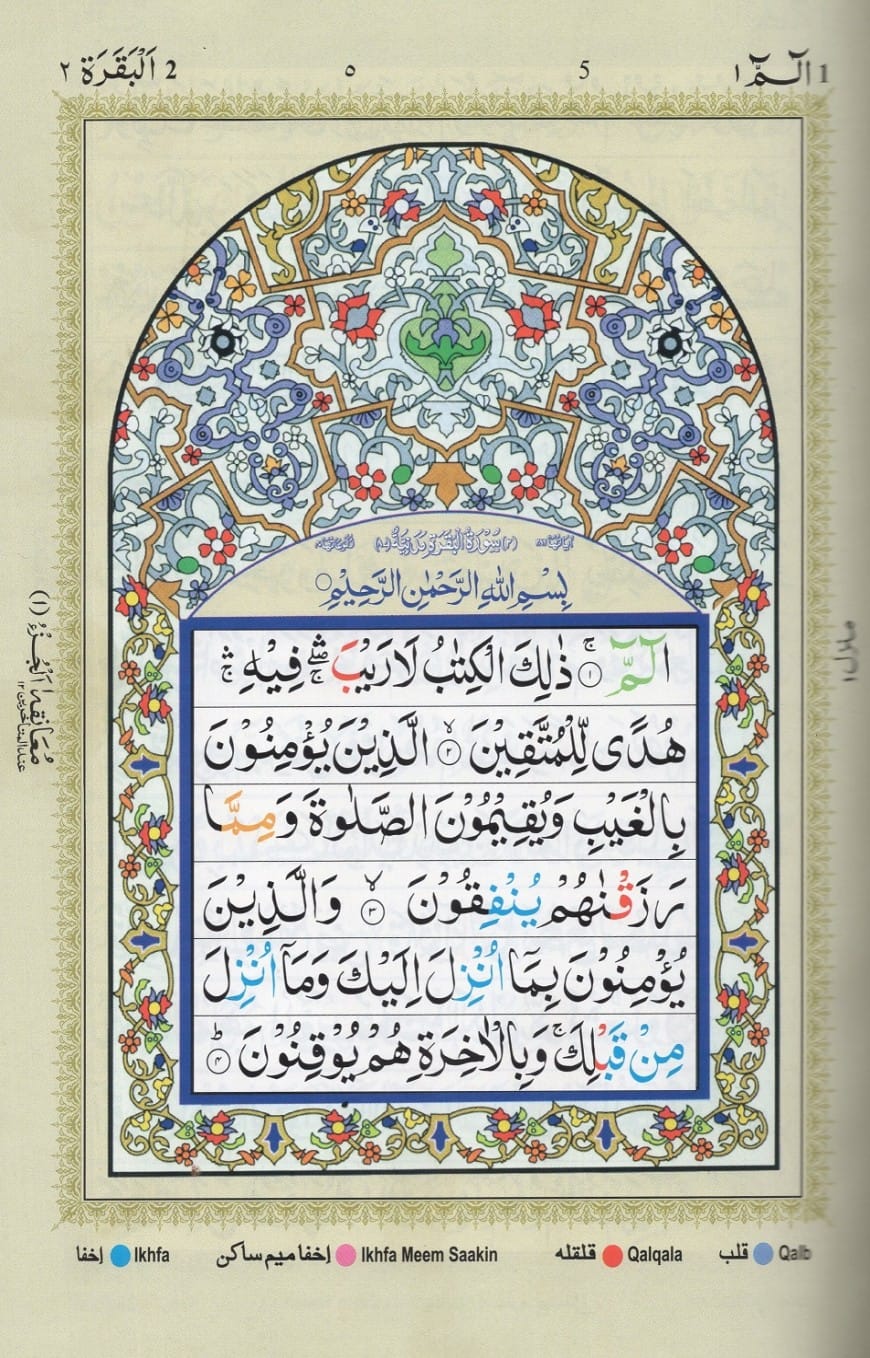 1 الٓمّٓ ۱
5
۵
2 اَلْبَقَرَة ۲
سُوْرَةُ الْبَقَرَةِ مَدَنِيَّةٌ
بِسْمِ اللّٰهِ الرَّحْمٰنِ الرَّحِيْمِ
الٓمّٓ ۚ ﴿۱﴾ ذٰلِكَ الْكِتٰبُ لَا رَيْبَ ۛۖۚ فِيْهِ ۛۚ
هُدًى لِّلْمُتَّقِيْنَ ۙ ﴿۲﴾ الَّذِيْنَ يُؤْمِنُوْنَ
بِالْغَيْبِ وَيُقِيْمُوْنَ الصَّلٰوةَ وَمِمَّا
رَزَقْنٰهُمْ يُنْفِقُوْنَ ۙ ﴿۳﴾ وَالَّذِيْنَ
يُؤْمِنُوْنَ بِمَاۤ اُنْزِلَ اِلَيْكَ وَمَاۤ اُنْزِلَ
مِنْ قَبْلِكَ ۚ وَبِالْاٰخِرَةِ هُمْ يُوْقِنُوْنَ ؕ ﴿۴﴾
مُعَانقه
اَلْجُزْءُ (۱)
منزل ۱
قلب Qalb
قلقله Qalqala
اِخفا میم ساکن Ikhfa Meem Saakin
اِخفا Ikhfa